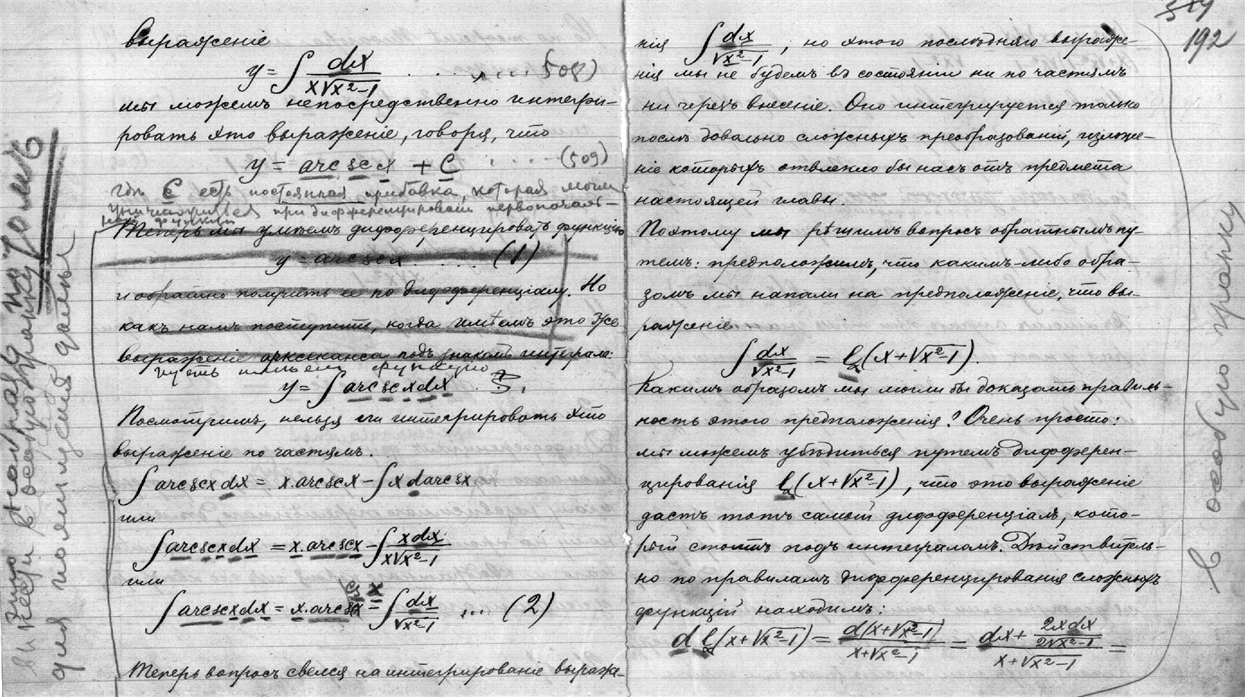 выраженiе
y = ∫ dx / x√x²-1 . . . . . . . . 508)
мы можемъ непосредственно интегри-
ровать это выраженiе, говоря, что
y = arcsc x + C . . . . (509)
гдѣ C есть постоянная прибавка, которая могла
при дифференцированiи первоначаль-
ной функцiи
Теперь мы умѣемъ дифференцировать функцiю
y = arcscx . . . . (1)
и обратно получить ее по дифференцiалу. Но
какъ намъ поступить, когда имѣемъ это же
выраженiе арксеканса подъ знакомъ интеграла:
пусть имѣемъ функцiю
y = ∫ arcscxdx
Посмотримъ, нельзя ли интегрировать это
выраженiе по частямъ.
∫ arcscxdx = x.arcscx - ∫ x darcsx
или
∫ arcscxdx = x.arcscx - ∫ xdx / x√x²-1
или
∫ arcscxdx = x.arcscx - ∫ dx / √x²-1 ... (2)
Теперь вопросъ свелся на интегрированiе выраже-
это набрать по 70 линiй
вынести в особую гранку
для полнiдущей дальше
519
192
нiя ∫ dx / √x²-1 ; но этого послѣдняго выраже-
нiя мы не будемъ въ состоянiи ни по частямъ
ни черезъ внесенiе. Оно интегрируется только
послѣ довольно сложныхъ преобразованiй, изложе-
нiе которыхъ отвлекло бы насъ отъ предмета
настоящей главы.
Поэтому мы рѣшимъ вопросъ обратнымъ пу-
темъ: предположимъ, что какимъ-либо обра-
зомъ мы напали на предположенiе, что вы-
раженiе
∫ dx / √x²-1 = lg (x+√x²-1).
Какимъ образомъ мы могли бы доказать правиль-
ность этого предположенiя? Очень просто:
мы можемъ убѣдиться путемъ дифферен-
цированiя lg (x+√x²-1), что это выраженiе
дастъ тотъ самый дифференцiалъ, кото-
рый стоитъ подъ интеграломъ. Дѣйствитель-
но по правиламъ дифференцированiя сложныхъ
функцiй находимъ:
d lg (x+√x²-1) = d(x+√x²-1) / x+√x²-1 = dx + 2xdx / 2√x²-1 / x+√x²-1 =
в особую гранку